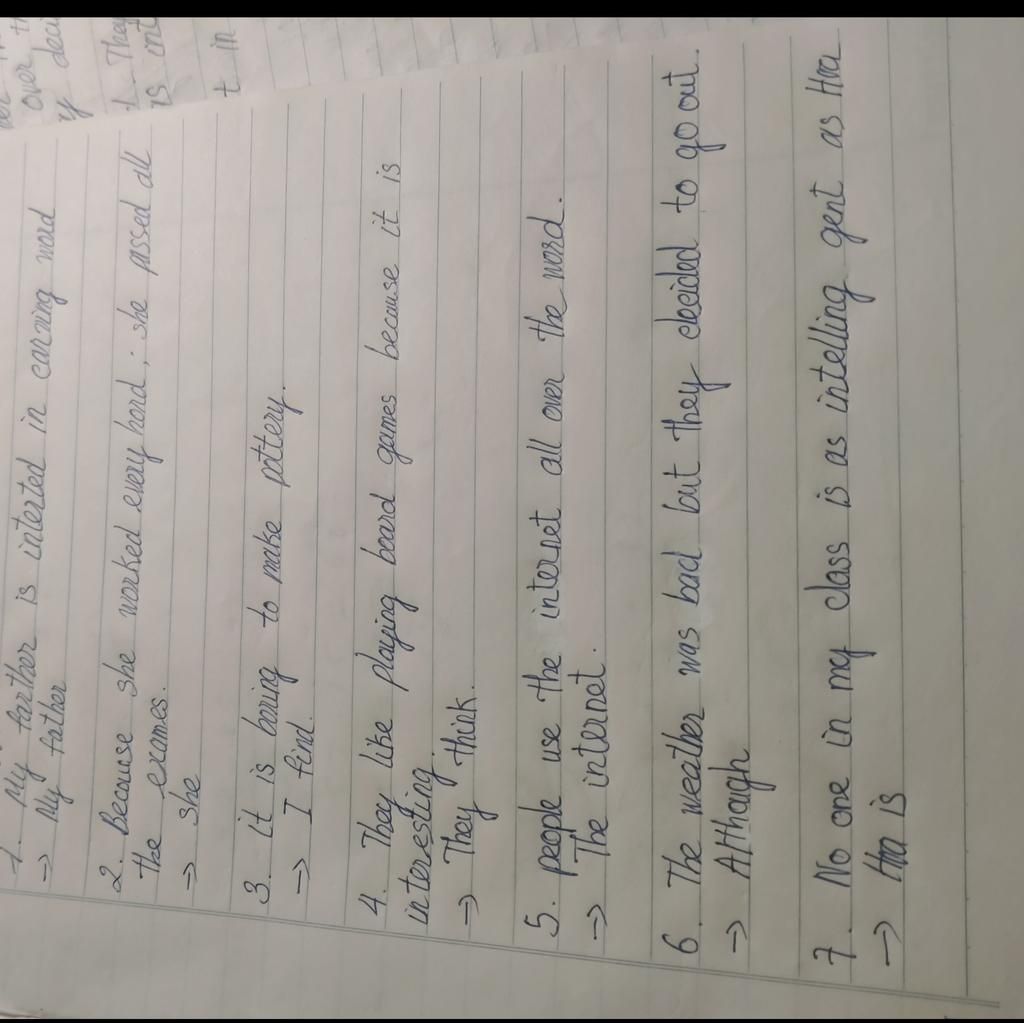 1. My farther is interted in carving word
→ My father
2. Because she worked every hard; she passed all
the exames.
→ she
3. it is boring to make pottery.
→ I find.
4. They like playing board games because it is
interesting
→ They think.
5. people use the internet all over the word.
→ The internet.
6. The weather was bad but they decided to go out.
→ Although
7. No one in my class is as intelling gent as Hoa
→ Hoa is